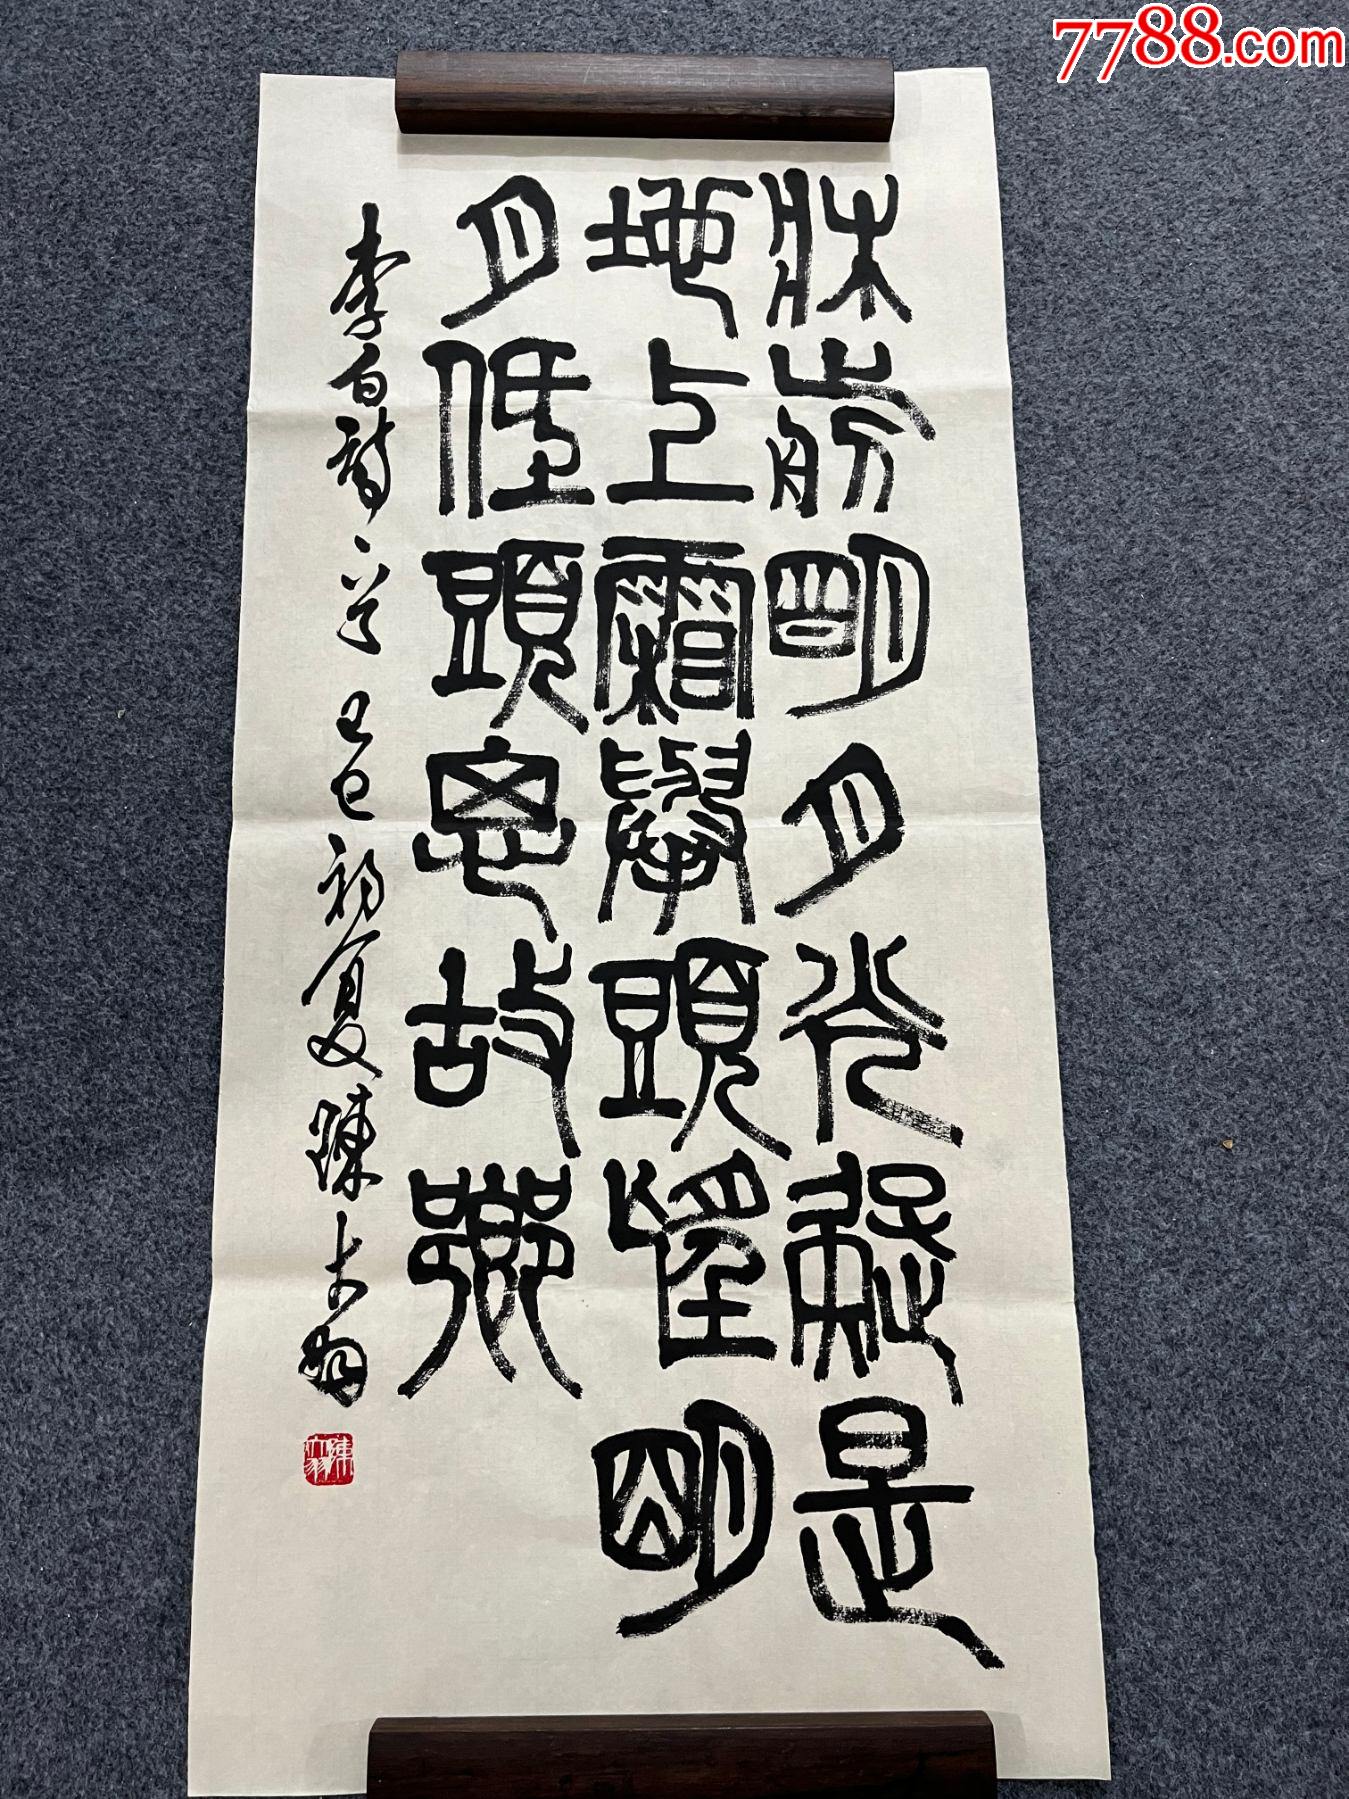 7788.com
牀前明月光疑是
地上霜舉頭望明
月低頭思故鄉
李白詩一首 己巳初夏 陳大羽
陳大羽